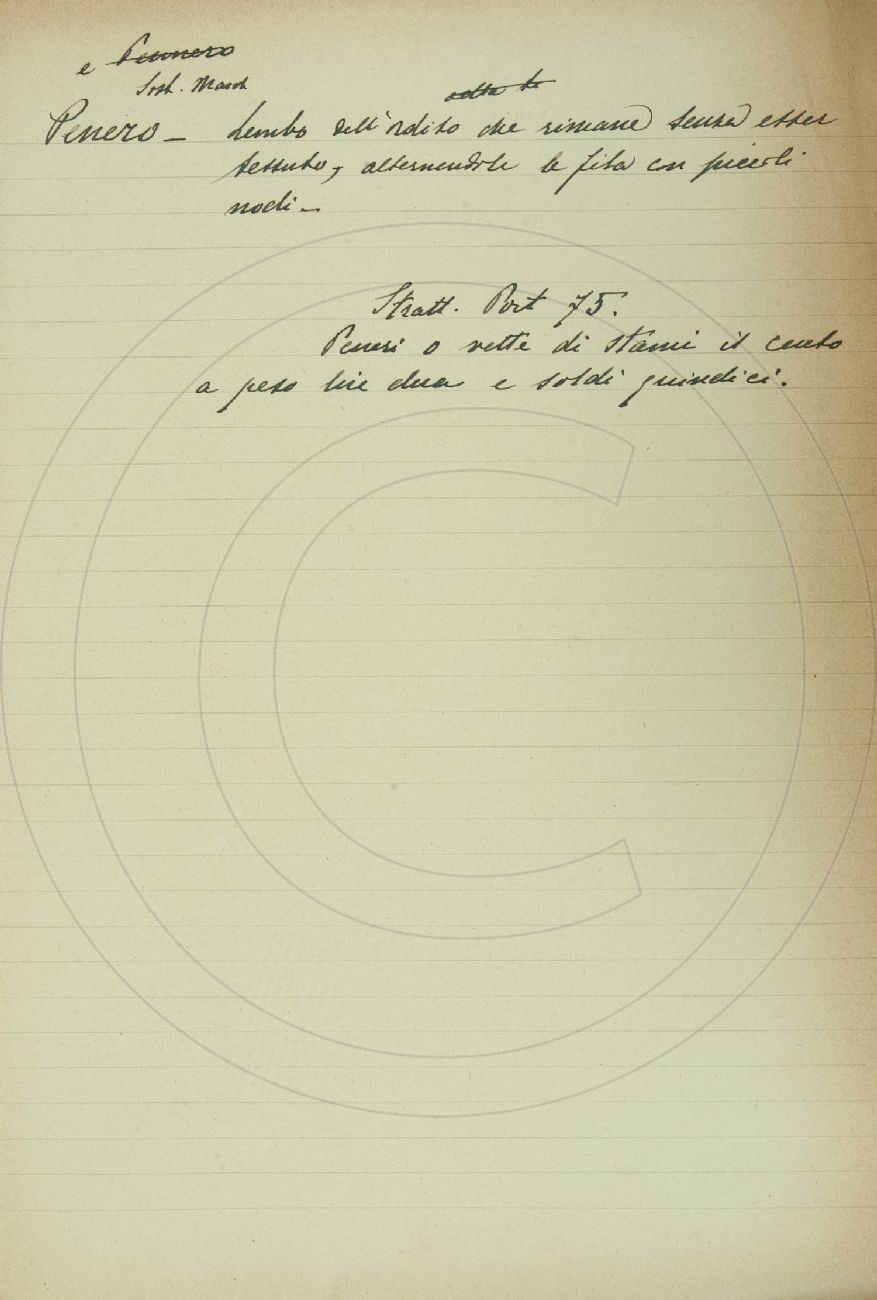 e Pennero
Sost. Masch
Penero – Lembo dell'ordito che rimane senza esser
tessuto, alternendole le fila con piccoli
nodi –
Stratt. Port 75.
Peneri o vette di stami il cento
a peso lire due e soldi quindici.